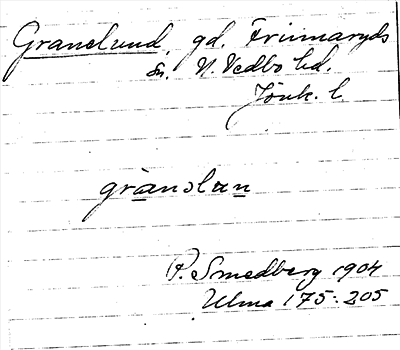 Granelund, gd. Frinnaryds
sn. N. Vedbo hd.
Jönk. l.
granslun
P. Smedberg 1904
Ulma 175:205